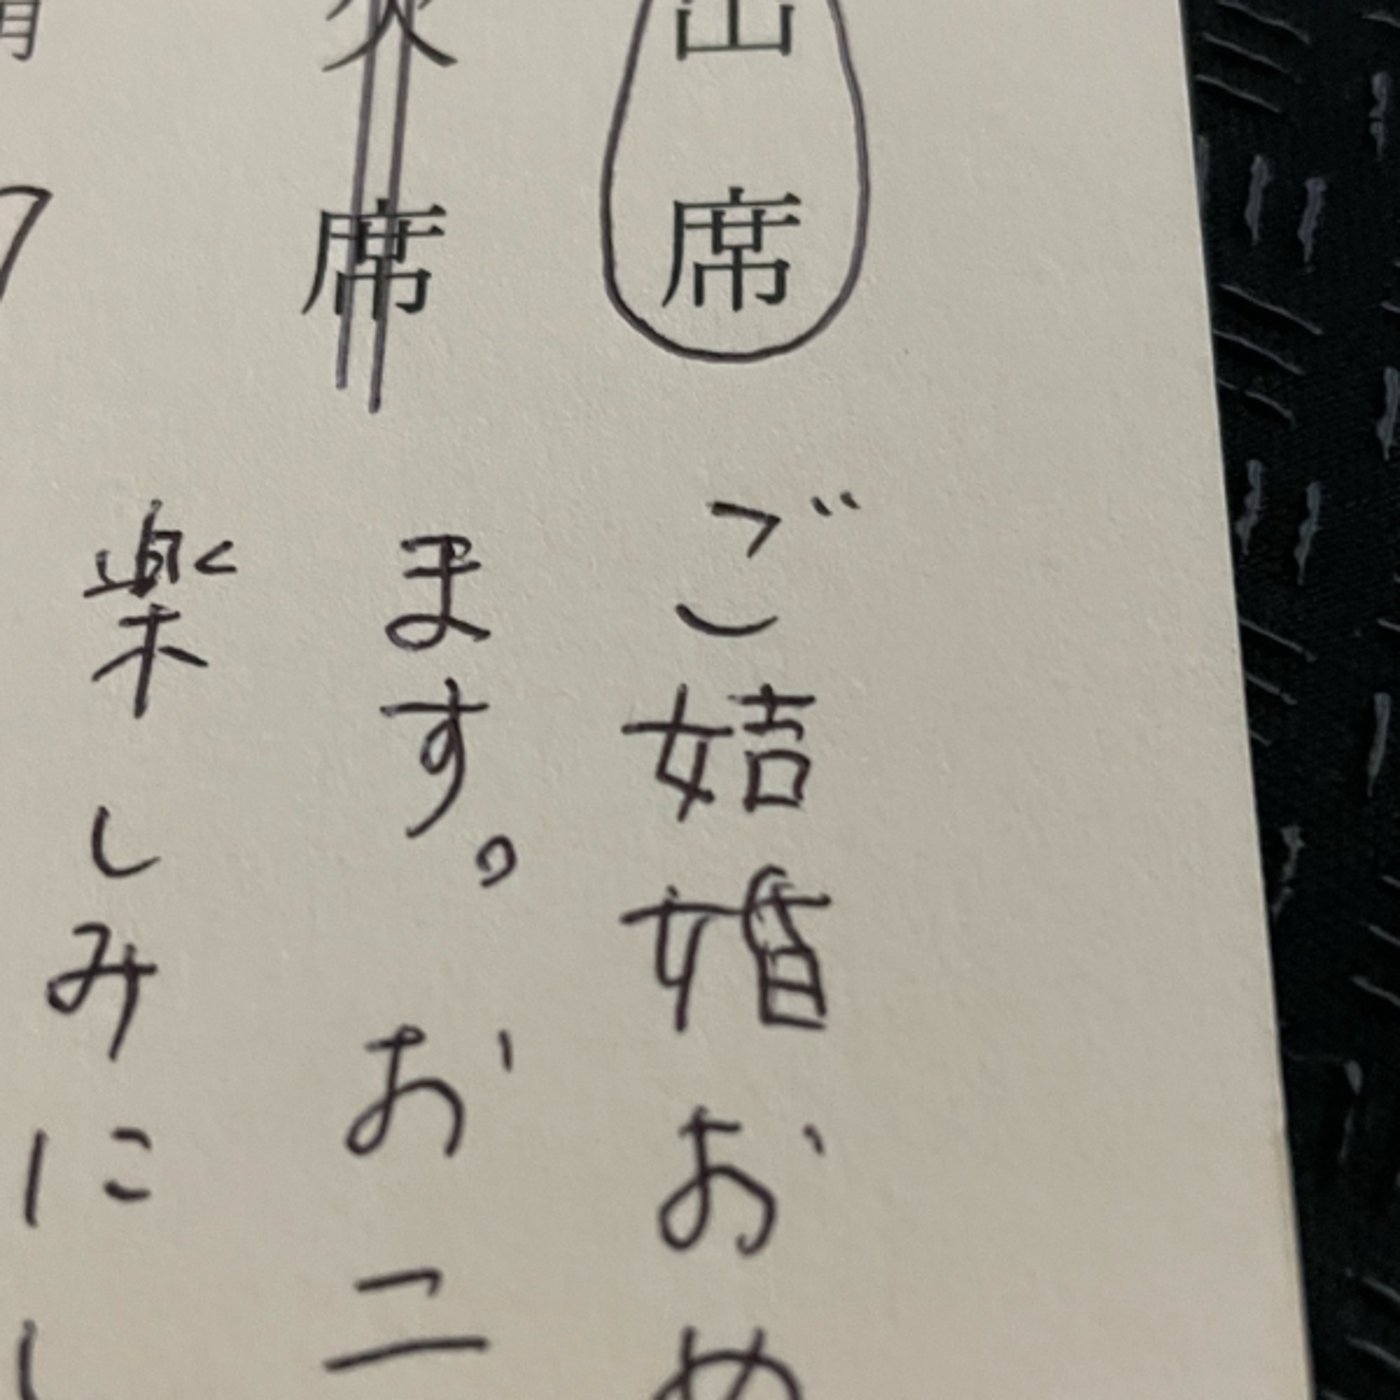 出席
ご結婚おめ
欠席
ます。お二
楽しみにし